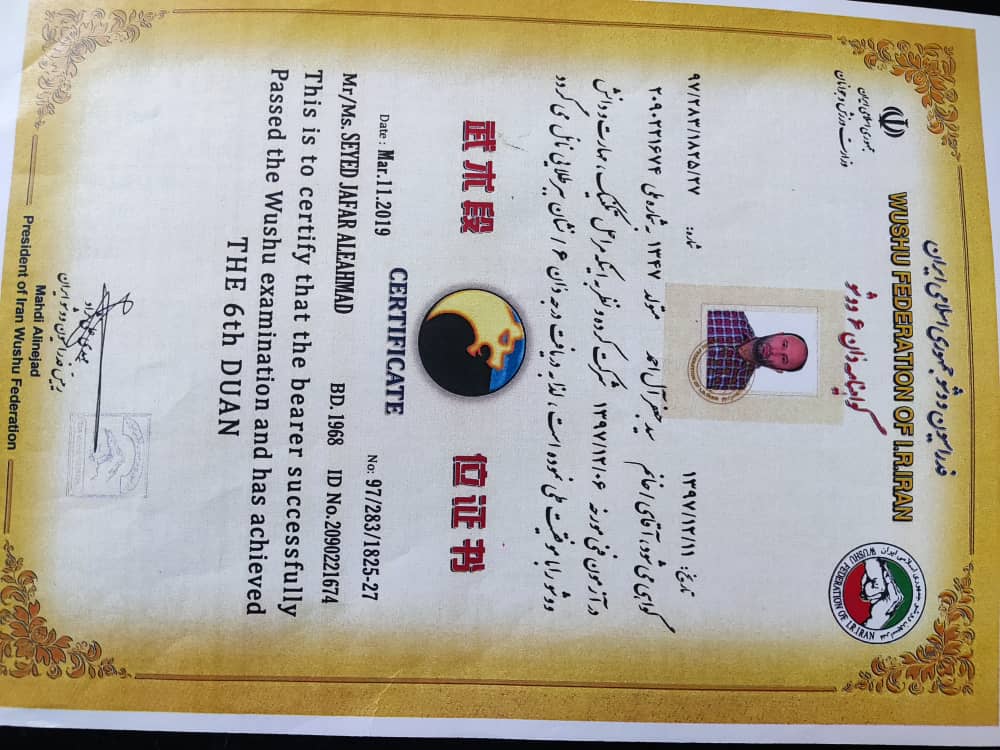 فدراسیون ووشو جمهوری اسلامی ایران
WUSHU FEDERATION OF I.R.IRAN
جمهوری اسلامی ایران
وزارت ورزش و جوانان
گواهینامه دان ۶ ووشو
WUSHU FEDERATION OF I.R.IRAN
شماره: ۹۷/۲۸۳/۱۸۲۵/۲۷
تاریخ: ۱۳۹۷/۱۲/۱۱
گواهی می شود، آقای/خانم سید جعفر آل احمد متولد ۱۳۴۷ شماره ملی ۲۰۹۰۲۲۱۶۷۴
در آزمون فنی مورخه ۱۳۹۷/۱۲/۰۶ شرکت کرده و نظر به اینکه مراحل تکنیک، مهارت و دانش
ووشو را با موفقیت طی نموده است، لذا به دریافت درجه دان ۶ / نشان ببر طلایی نائل می گردد
武术段 位证书
CERTIFICATE
Date: Mar.11.2019 No: 97/283/1825-27
Mr/Ms. SEYED JAFAR ALEAHMAD BD. 1968 ID No.2090221674
This is to certify that the bearer successfully
Passed the Wushu examination and has achieved
THE 6th DUAN
مهدی علی نژاد
رئیس فدراسیون ووشو ایران
Mahdi Alinejad
President of Iran Wushu Federation